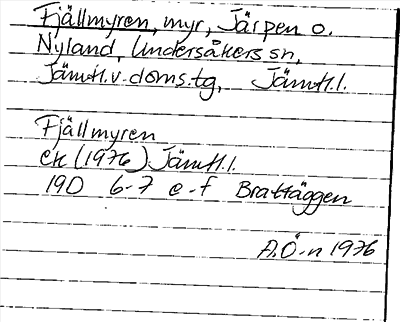 Fjällmyren, myr, Järpen o.
Nyland, Undersåkers sn,
Jämtl.v.doms.tg, Jämtl.l.
Fjällmyren
ek (1976) Jämtl.l.
19D 6-7 e-f Brattäggen
A.Ö-n 1976